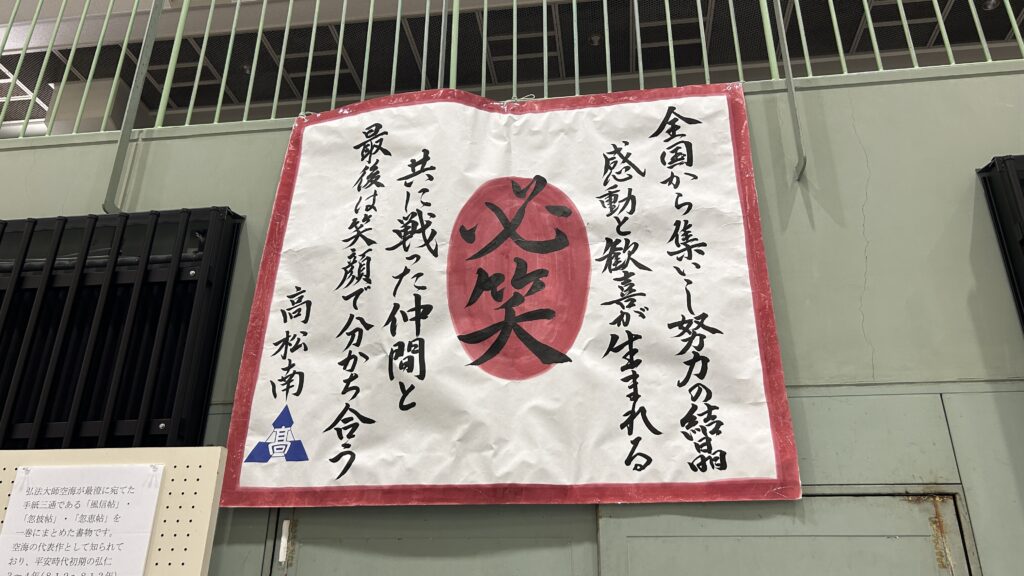 全国から集いし努力の結晶
感動と歓喜が生まれる
必笑
共に戦った仲間と
最後は笑顔で分かち合う
高松南
高
弘法大師空海が最澄に宛てた
手紙三通である「風信帖」・
「忽披帖」・「忽恵帖」を
一巻にまとめた書物です。
空海の代表作として知られて
おり、平安時代初期の弘仁
3～4年(812～813年)